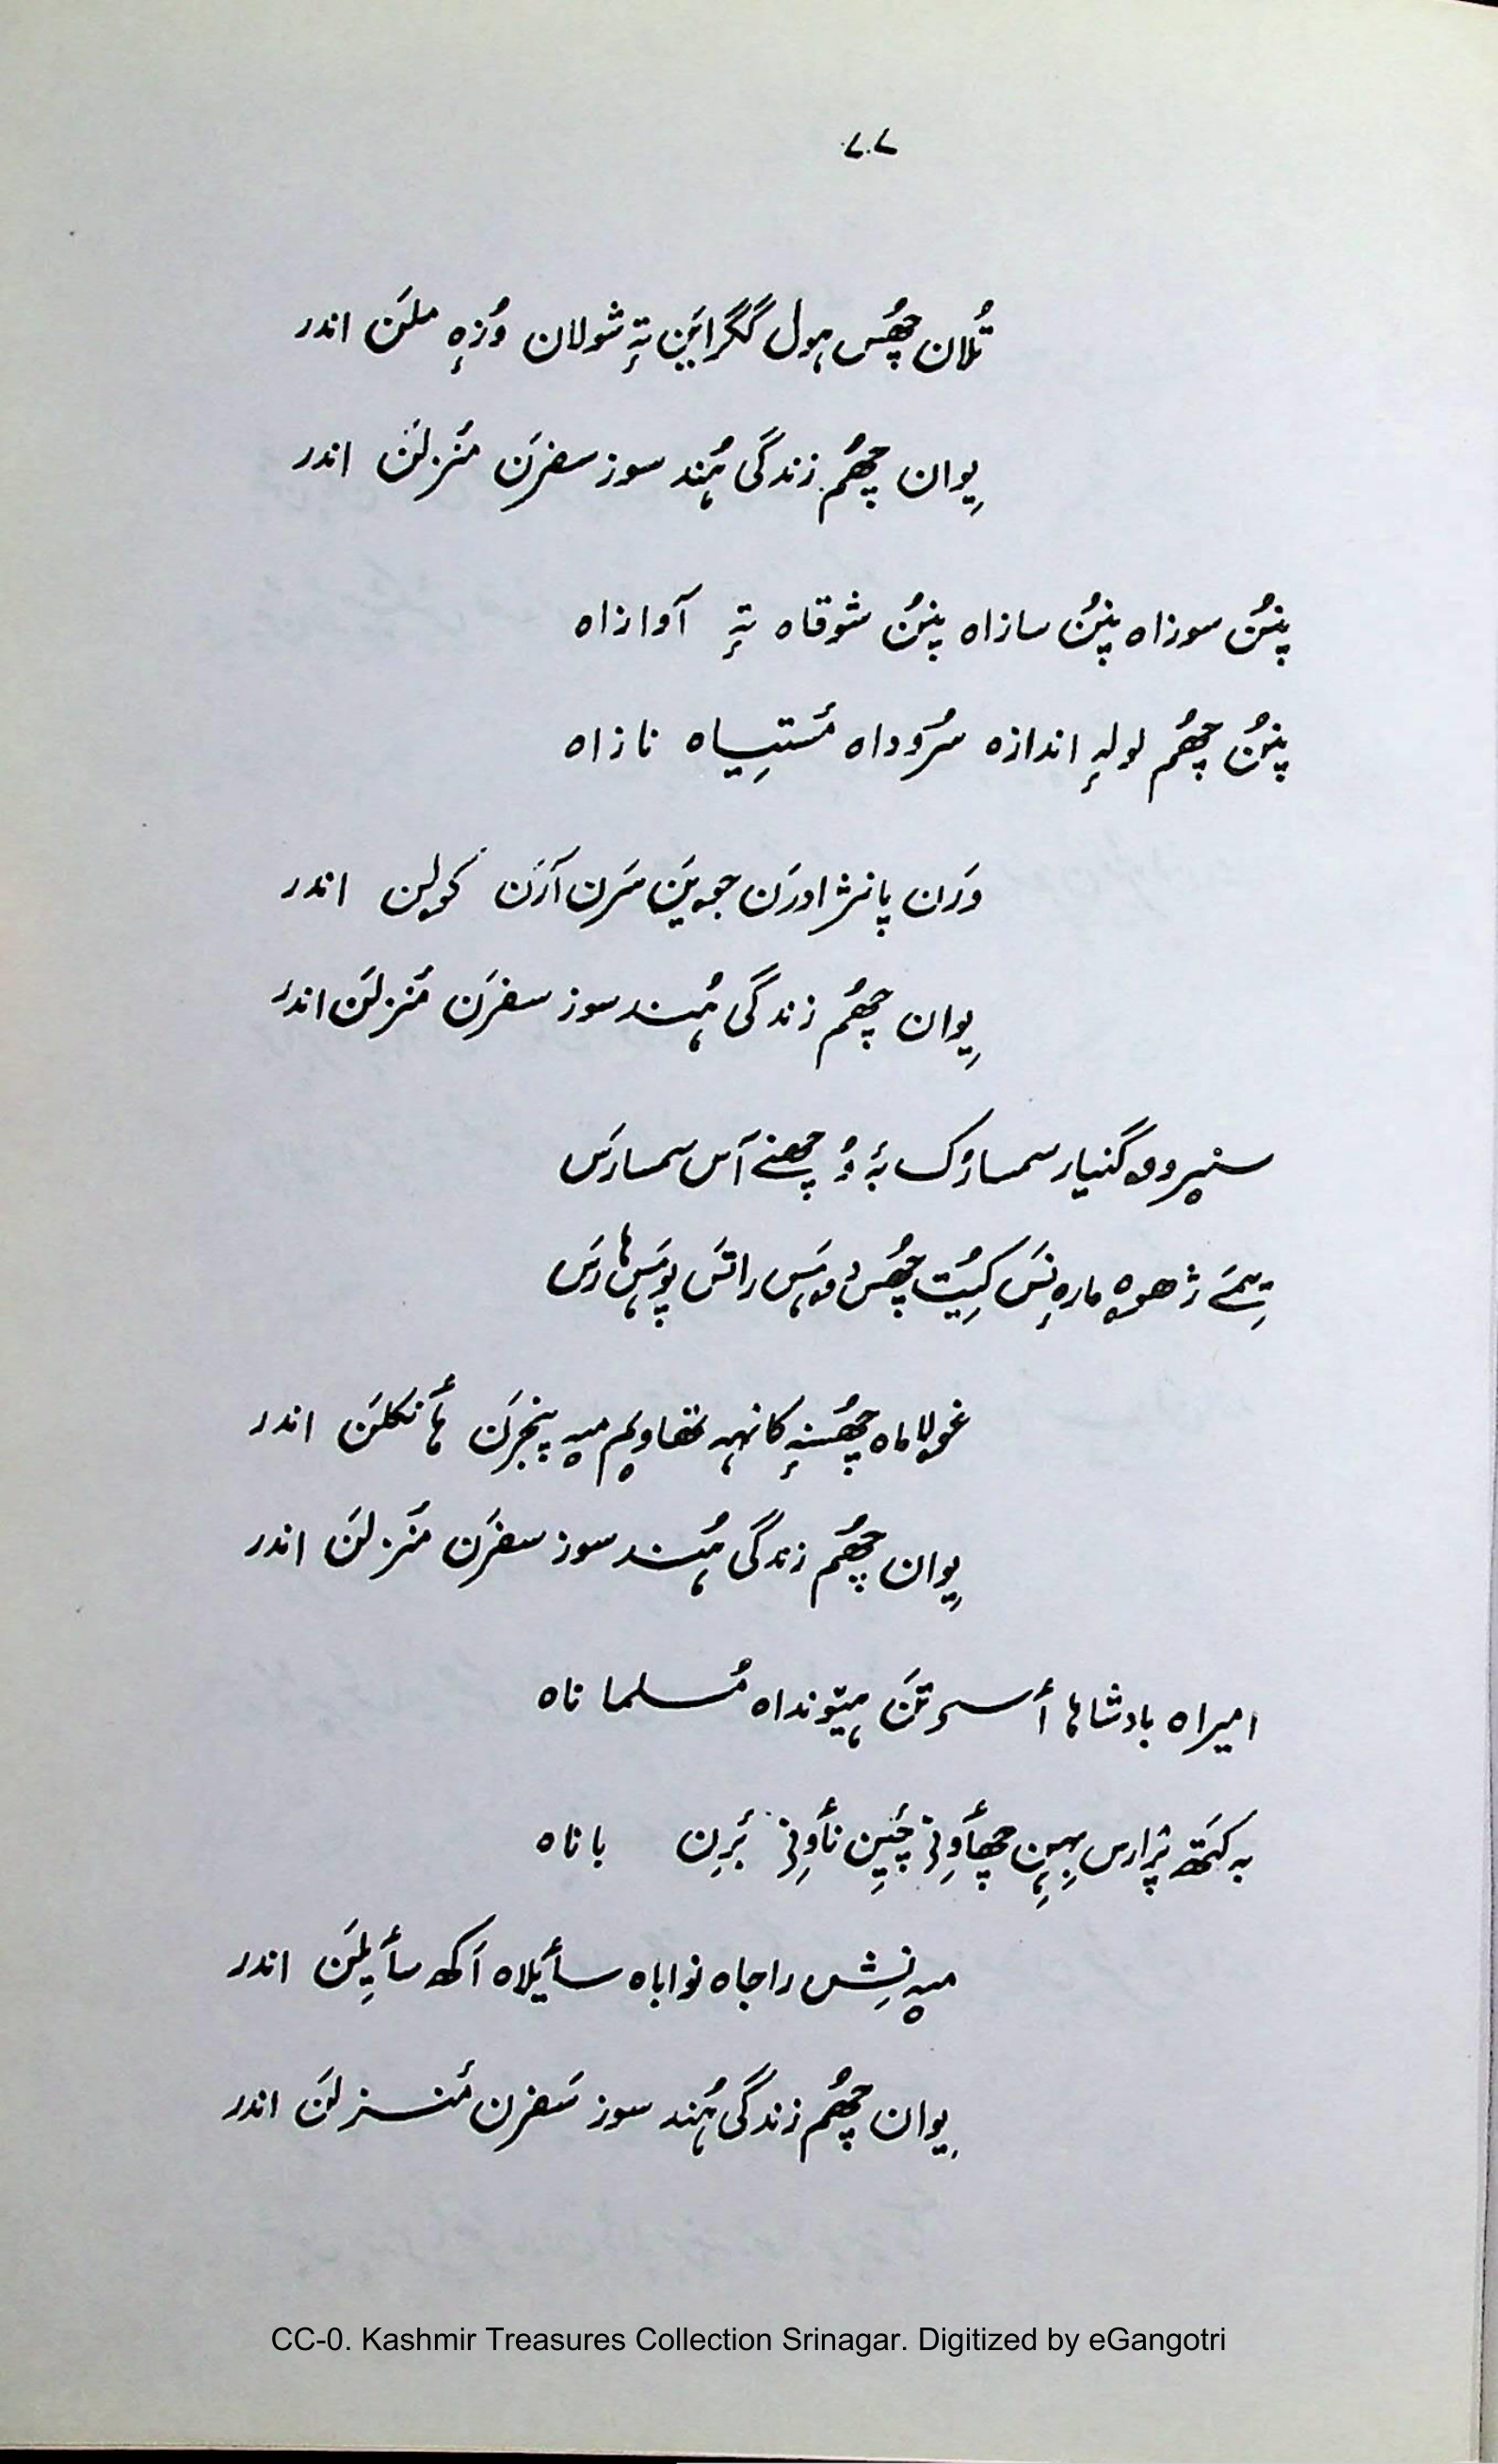 ۷۰۷
تُلان چھُس ہول گگرایَن تہٕ شولان وُزٕہ ملَن اندر
یِوان چھُم زندگی ہُند سوز سفرَن مَنزلَن اندر
پنُن سوزاہ پنُن سازاہ پنُن شوقاہ تہٕ آوازاہ
پنُن چھُم لولہٕ اندازہ سُروداہ مَستیِیاہ نازاہ
وَرَن پانژادرَن جویَن سَرن آرَن کولین اندر
یِوان چھُم زندگی ہُند سوز سفرَن مَنزلَن اندر
گنیار سمسارُک بہٕ چھنے آس سمسارَس
ژھوہ مارٕہ نِسَ کیُت چھُس دوہَس راتَس پوہَس ہارَس
غولاماہ چھُسنہٕ کانہہ تھاویم میہ پنجرَن ہأنکلَن اندر
یِوان چھُم زندگی ہُند سوز سفرَن مَنزلَن اندر
امیراہ بادشاہا أستَن ہیٚونداہ مُسلماناہ
بہ کَتھ پرارس بہِہن چھأوِنی چیَن نأوِنی بَرِن باناہ
میہ نِش راجاہ نواباہ سأیلاہ اَکھ سأیِلَن اندر
یِوان چھُم زندگی ہُند سوز سَفرن مَنزلَن اندر
CC-0. Kashmir Treasures Collection Srinagar. Digitized by eGangotri